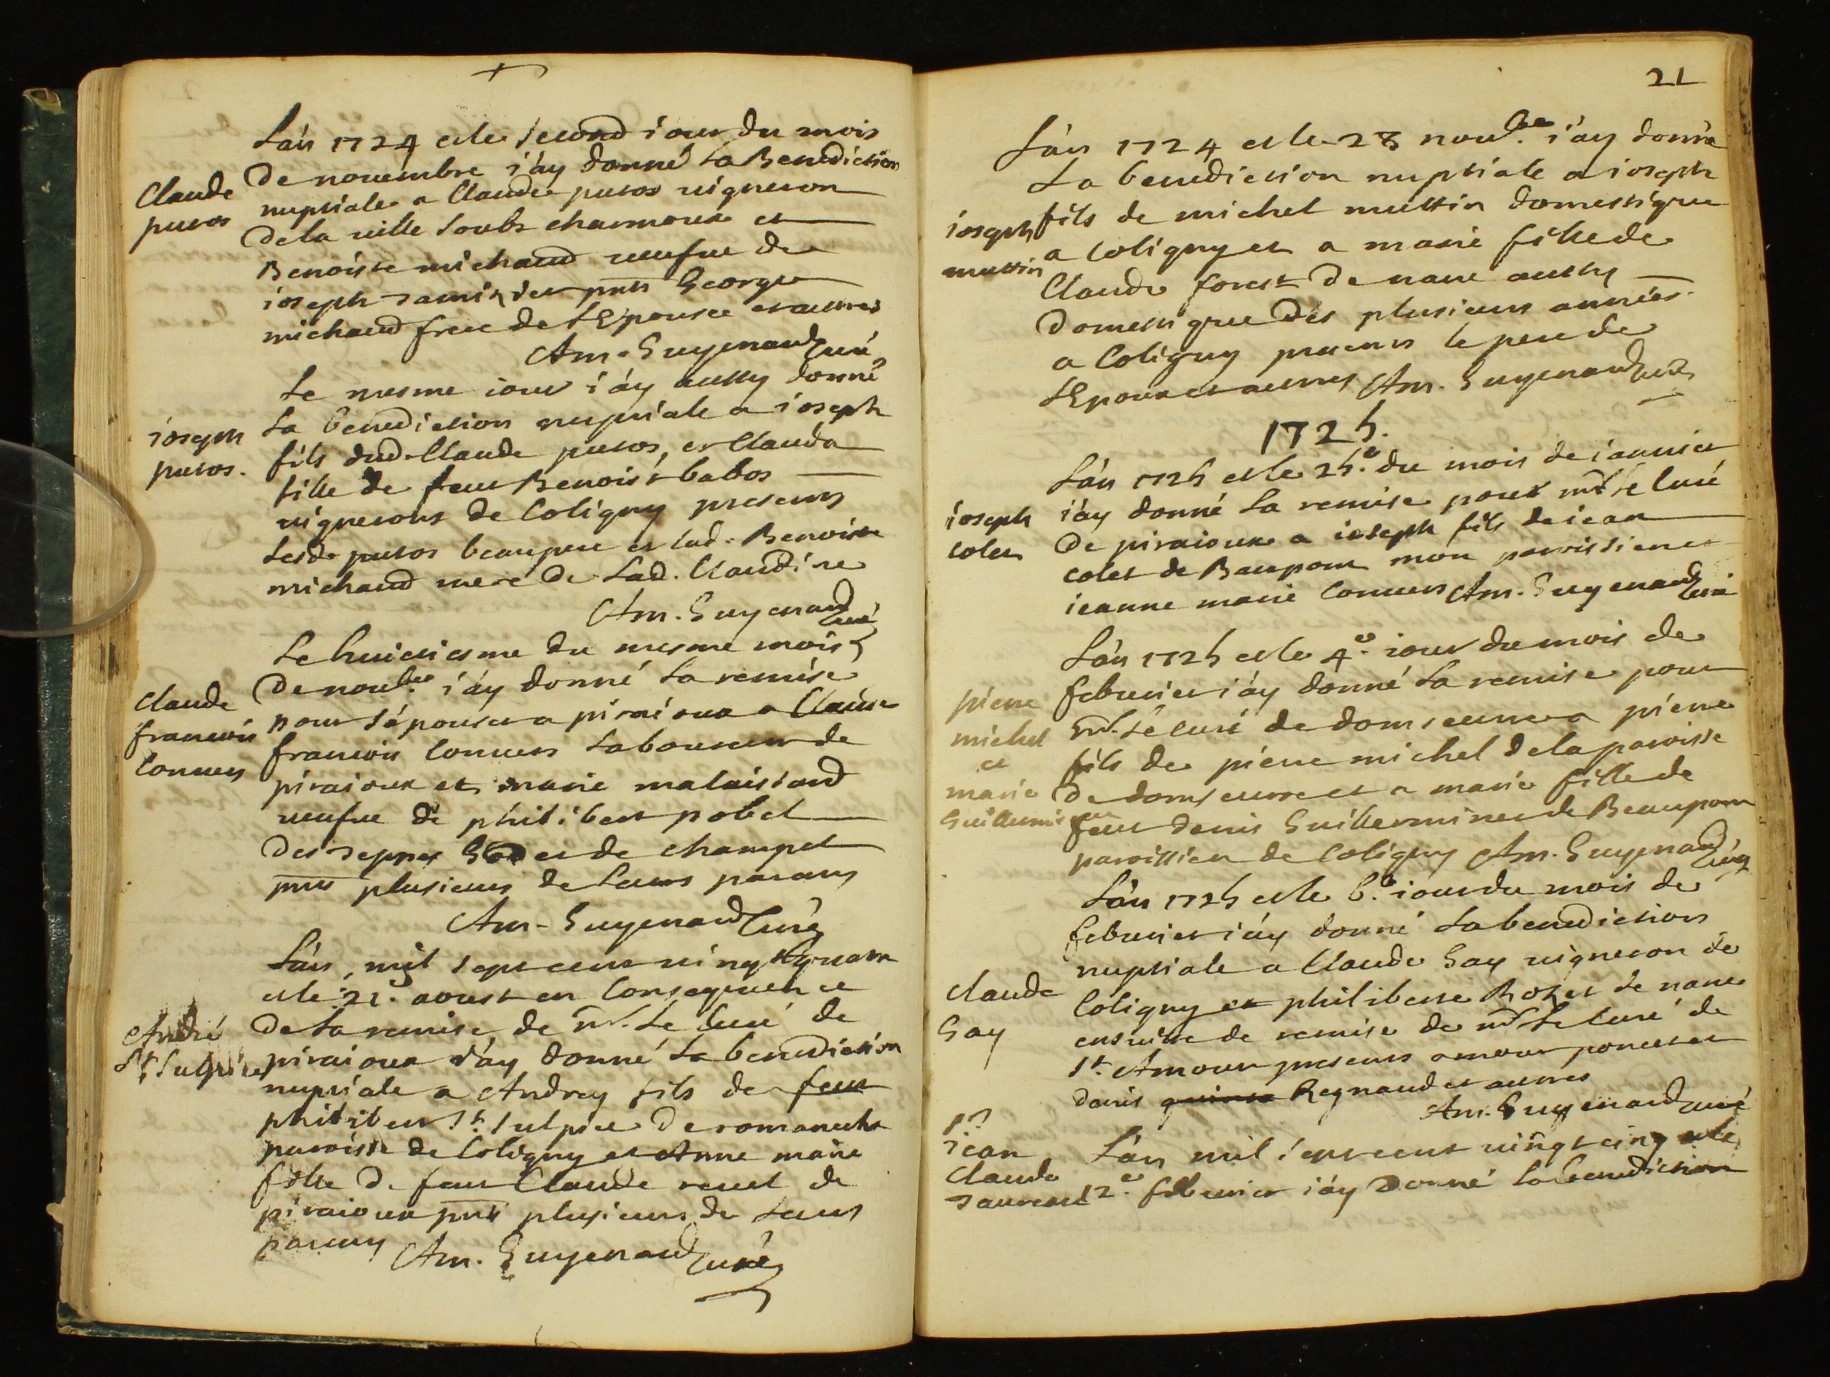 Lán 1724 et le second iour du mois
de nouembre i'áy donné la Benediction
Claude puros
nuptiale a Claude puros uigneron
de la uille soubs charmoux et
Benoiste michaud ueufue de
ioseph Jamin, pnts George
michaud frere de l'Epousee et autres
Am. Guyenard Curé
Le mesme iour i'áy aussy donné
ioseph puros.
la benediction nuptiale a ioseph
fils dud. Claude puros, et Claudá
fille de feu Benoist babos
uignerons de Coligny presents
lesd. puros beaupere et lad. Benoiste
michaud mere de lad. Claudine
Am. Guyenard Curé
Le huictiesme du mesme mois
Claude francois Conuers
de noubre i'áy donné la remise
pour s'épouser a piraioux a Claude
francois Conuers laboureur de
piraioux et marie malaissard
ueufue de philibert pobel
des et de champel
pnts plusieurs de leurs parans
Am. Guyenard Curé
Lán, mil sept cent uingt quatre
et le 21e. aoust en Consequence
André St. Sulpice
de la remise de mr. le Curé de
piraioux i'áy donné la benediction
nuptiale a Andrey fils de feu
philibert St. Sulpice de romaneche
paroisse de Coligny et Anne marie
fille de feu Claude reuel de
piraioux pnts plusieurs de leurs
parans Am. Guyenard Curé
21
Lán 1724 et le 28 noubre i'áy donné
la benediction nuptiale a ioseph
ioseph muttin
fils de michel muttin domestique
a Coligny et a marie fille de
Claude forest de nanc aussy
domestique dés plusieurs années
a Coligny presents le pere de
l'Epoux et autres Am. Guyenard Curé
1725.
Lán 1725 et le 25e. du mois de iánuier
ioseph colet
i'áy donné la remise pour mr. le Curé
de piraioux a ioseph fils de iean
colet de Beaupont mon paroissien et
ieanne marie Conuers Am. Guyenard Curé
Lán 1725 et le 4e. iour du mois de
pierre michel et marie Guillermin
februier i'áy donné la remise pour
mr. le curé de domseurre a pierre
fils de pierre michel de la paroisse
de domseurre et a marie fille de
feu denis Guillerminet de Beaupont
paroissien de Coligny Am. Guyenard Curé
Lán 1725 et le 6e. iour du mois de
februier i'áy donné la benediction
Claude Gay
nuptiale a Claude Gay uigneron de
Coligny et philiberte Rozet de nanc
ensuitte de remise de mr. le Curé de
St. Amour presents amour poncet et
denis Regnaud et autres
Am. Guyenard curé
iean Claude
Lán mil sept cent uingt cinq et le
12e. februier i'áy donné la benediction